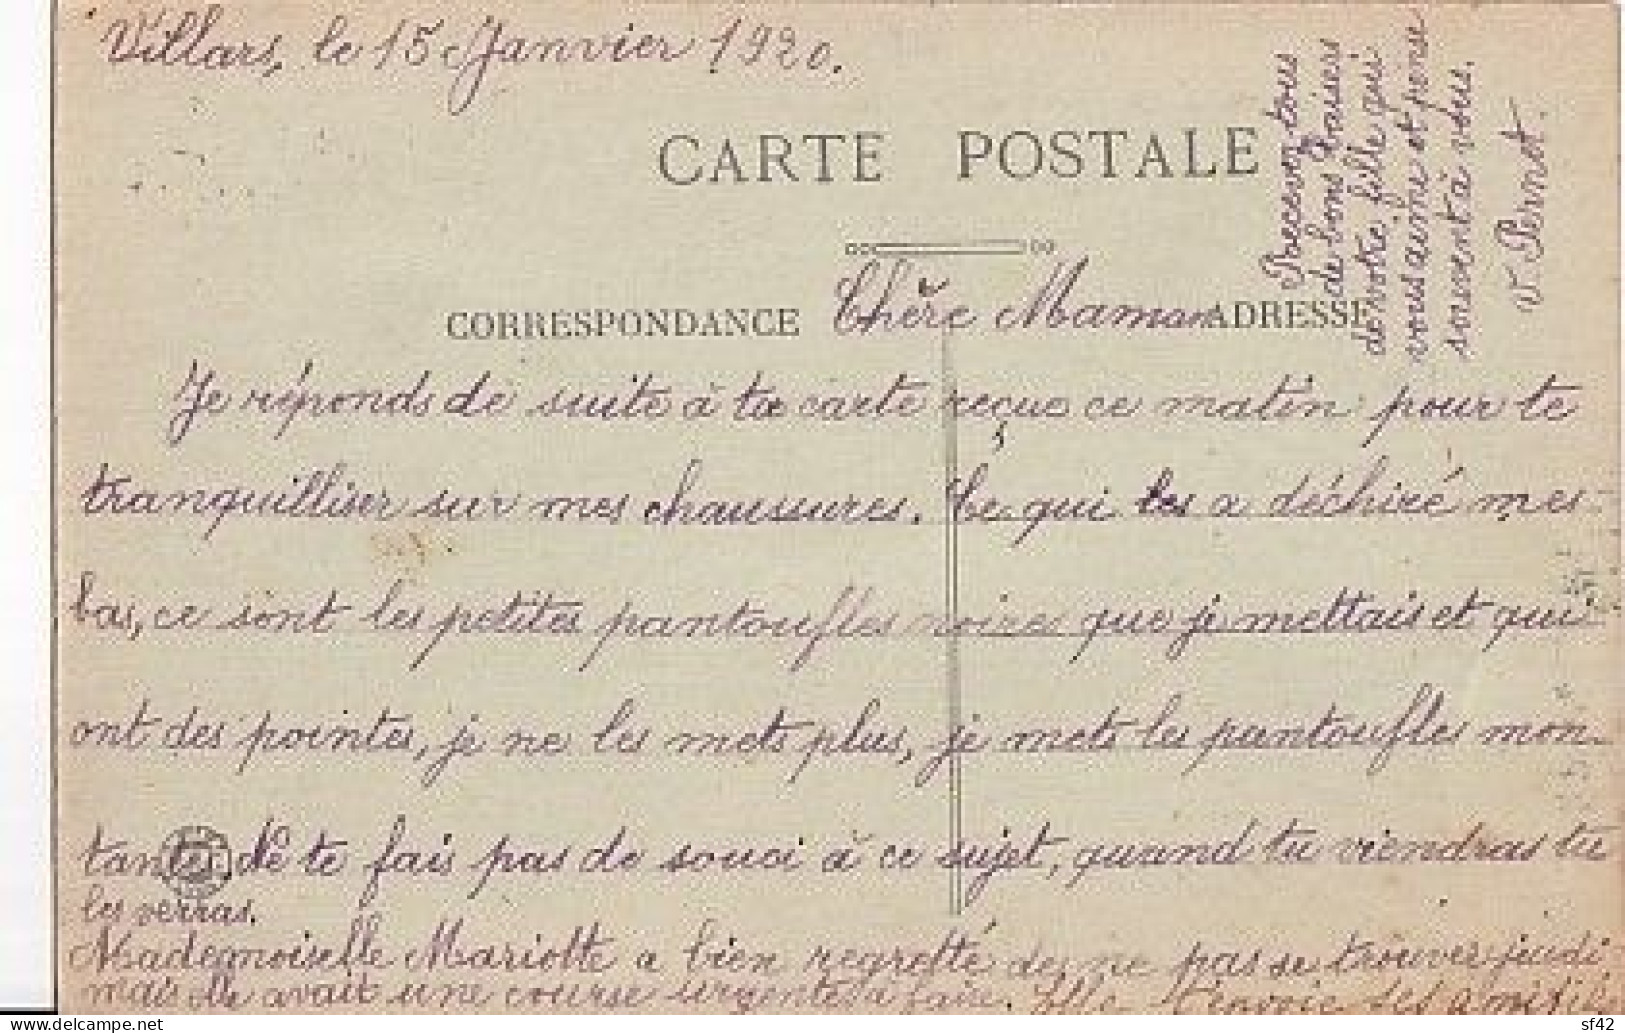 Villars, le 15 Janvier 1920.
CARTE POSTALE
CORRESPONDANCE
Chère Maman
ADRESSE
Je réponds de suite à ta carte reçue ce matin pour te
tranquilliser sur mes chaussures. Ce qui a déchiré mes
bas, ce sont les petites pantoufles noires que je mettais et qui
ont des pointes, je ne les mets plus, je mets les pantoufles mon-
tantes. Ne te fais pas de souci à ce sujet, quand tu viendras tu
les verras.
Mademoiselle Mariotte a bien regretté de ne pas se trouver jeudi
mais elle avait une course urgente à faire. Elle t'envoie ses
Recevez tous
de bons baisers
de votre fille qui
vous aime et pense
souvent à vous.
V. Pernot.
delcampe.net
sf42